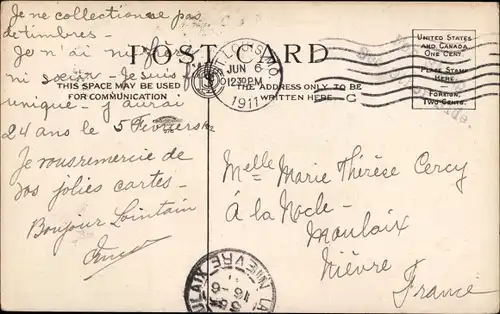 Je ne collectionne pas
de timbres -
Je n'ai ni frère
ni sœur - Je suis fils
unique - J'aurai
24 ans le 5 Février
Je vous remercie de
vos jolies cartes -
Bonjour Lointain
POST CARD
THIS SPACE MAY BE USED
FOR COMMUNICATION
THE ADDRESS ONLY TO BE
WRITTEN HERE
ST. LOUIS, MO.
JUN 6
12 30 PM
1911
C
UNITED STATES
AND CANADA
ONE CENT.
PLACE STAMP
HERE
FOREIGN,
TWO CENTS.
Melle Marie Thérèse Cercy
À la Nocle -
Maulaix
Nièvre
France
LA NOCLE-MAULAIX
NIEVRE
16-6
11